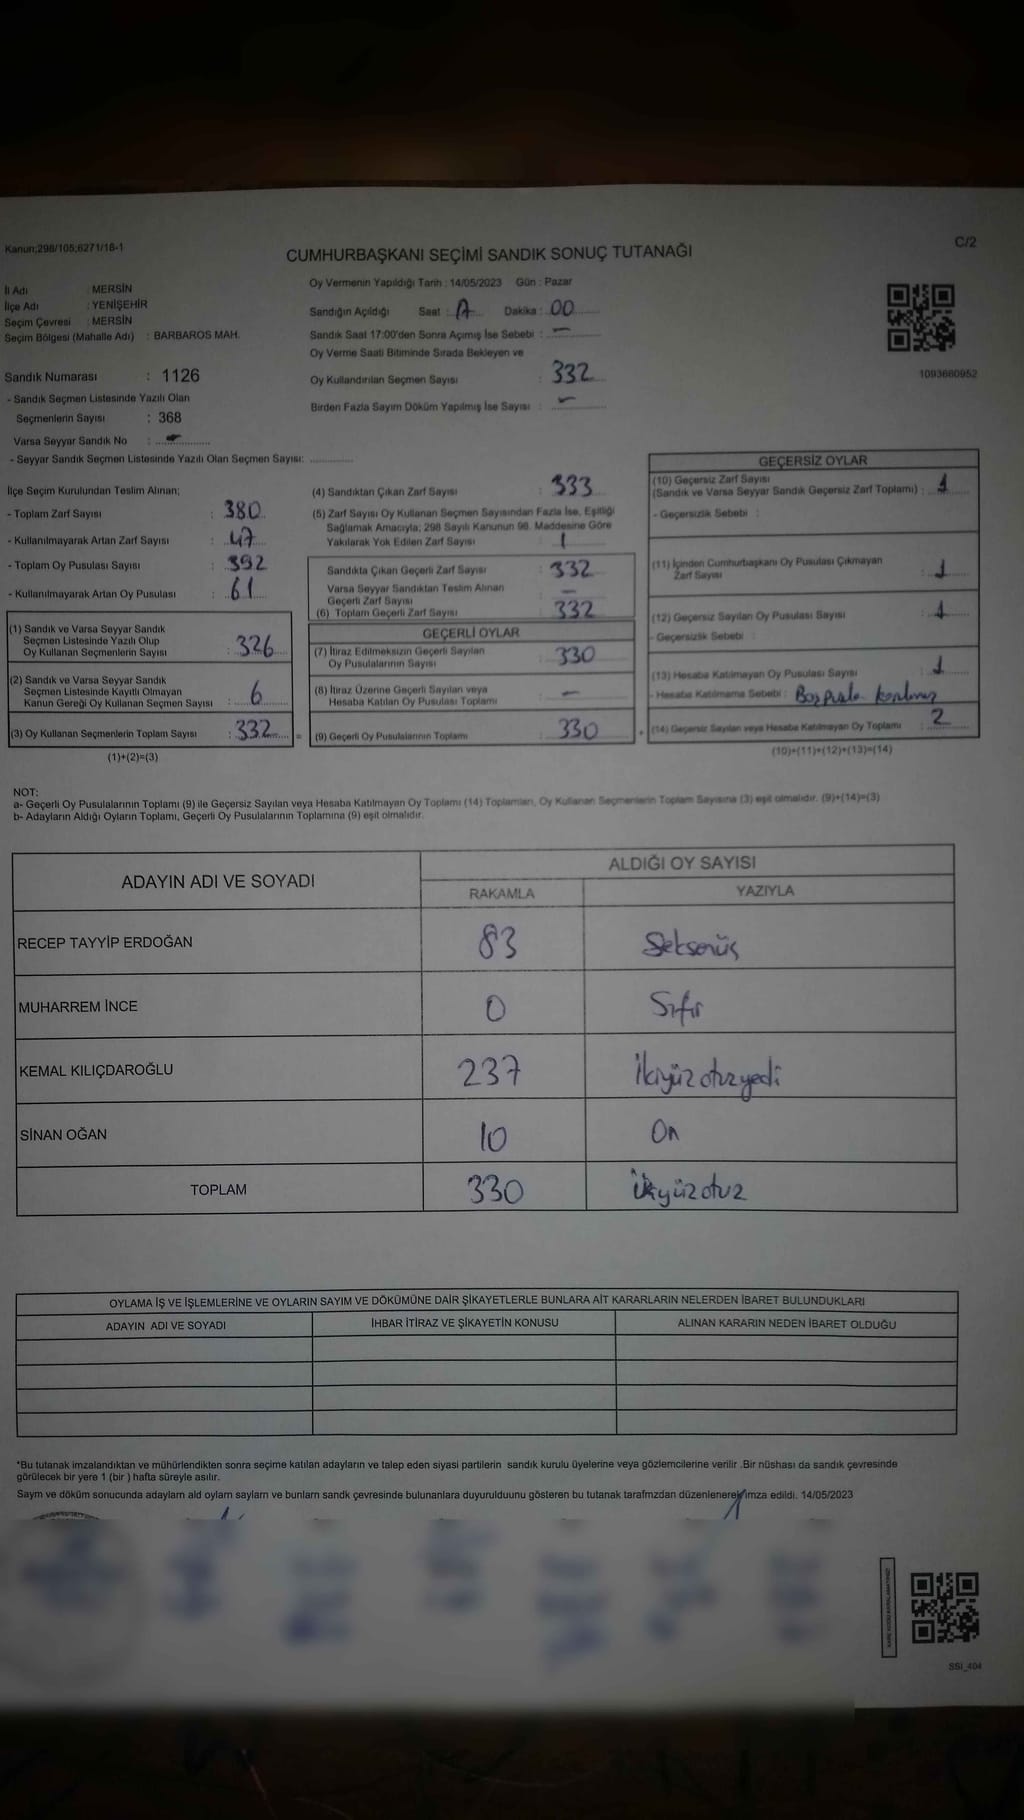 Kanun;298/105;6271/18-1
C/2
CUMHURBAŞKANI SEÇİMİ SANDIK SONUÇ TUTANAĞI
İl Adı : MERSİN
İlçe Adı : YENİŞEHİR
Seçim Çevresi : MERSİN
Seçim Bölgesi (Mahalle Adı) : BARBAROS MAH.
Sandık Numarası : 1126
- Sandık Seçmen Listesinde Yazılı Olan
Seçmenlerin Sayısı : 368
Varsa Seyyar Sandık No : -
- Seyyar Sandık Seçmen Listesinde Yazılı Olan Seçmen Sayısı: ..............
Oy Vermenin Yapıldığı Tarih : 14/05/2023 Gün : Pazar
Sandığın Açıldığı Saat : Dakika : 00
Sandık Saat 17:00'den Sonra Açımış İse Sebebi : -
Oy Verme Saati Bitiminde Sırada Bekleyen ve
Oy Kullandırılan Seçmen Sayısı : 332
Birden Fazla Sayım Döküm Yapılmış İse Sayısı : -
1093660952
İlçe Seçim Kurulundan Teslim Alınan;
- Toplam Zarf Sayısı : 380
- Kullanılmayarak Artan Zarf Sayısı : 47
- Toplam Oy Pusulası Sayısı : 392
- Kullanılmayarak Artan Oy Pusulası : 61
(1) Sandık ve Varsa Seyyar Sandık
Seçmen Listesinde Yazılı Olup
Oy Kullanan Seçmenlerin Sayısı : 326
(2) Sandık ve Varsa Seyyar Sandık
Seçmen Listesinde Kayıtlı Olmayan
Kanun Gereği Oy Kullanan Seçmen Sayısı : 6
(3) Oy Kullanan Seçmenlerin Toplam Sayısı : 332
(1)+(2)=(3)
(4) Sandıktan Çıkan Zarf Sayısı : 333
(5) Zarf Sayısı Oy Kullanan Seçmen Sayısından Fazla İse, Eşitliği
Sağlamak Amacıyla; 298 Sayılı Kanunun 98. Maddesine Göre
Yakılarak Yok Edilen Zarf Sayısı : 1
Sandıkta Çıkan Geçerli Zarf Sayısı : 332
Varsa Seyyar Sandıktan Teslim Alınan
Geçerli Zarf Sayısı : -
(6) Toplam Geçerli Zarf Sayısı : 332
GEÇERLİ OYLAR
(7) İtiraz Edilmeksizin Geçerli Sayılan
Oy Pusulalarının Sayısı : 330
(8) İtiraz Üzerine Geçerli Sayılan veya
Hesaba Katılan Oy Pusulası Toplamı : -
= (9) Geçerli Oy Pusulalarının Toplamı : 330
GEÇERSİZ OYLAR
(10) Geçersiz Zarf Sayısı
(Sandık ve Varsa Seyyar Sandık Geçersiz Zarf Toplamı) : 1
- Geçersizlik Sebebi :
(11) İçinden Cumhurbaşkanı Oy Pusulası Çıkmayan
Zarf Sayısı : 1
(12) Geçersiz Sayılan Oy Pusulası Sayısı : 1
- Geçersizlik Sebebi :
(13) Hesaba Katılmayan Oy Pusulası Sayısı : 1
- Hesaba Katılmama Sebebi : Boş
+ (14) Geçersiz Sayılan veya Hesaba Katılmayan Oy Toplamı : 2
(10)+(11)+(12)+(13)=(14)
NOT:
a- Geçerli Oy Pusulalarının Toplamı (9) ile Geçersiz Sayılan veya Hesaba Katılmayan Oy Toplamı (14) Toplamları, Oy Kullanan Seçmenlerin Toplam Sayısına (3) eşit olmalıdır. (9)+(14)=(3)
b- Adayların Aldığı Oyların Toplamı, Geçerli Oy Pusulalarının Toplamına (9) eşit olmalıdır.
ADAYIN ADI VE SOYADI
ALDIĞI OY SAYISI
RAKAMLA YAZIYLA
RECEP TAYYİP ERDOĞAN 83 Seksenüç
MUHARREM İNCE 0 Sıfır
KEMAL KILIÇDAROĞLU 237 İkiyüz otuzyedi
SİNAN OĞAN 10 On
TOPLAM 330 üçyüz otuz
OYLAMA İŞ VE İŞLEMLERİNE VE OYLARIN SAYIM VE DÖKÜMÜNE DAİR ŞİKAYETLERLE BUNLARA AİT KARARLARIN NELERDEN İBARET BULUNDUKLARI
ADAYIN ADI VE SOYADI İHBAR İTİRAZ VE ŞİKAYETİN KONUSU ALINAN KARARIN NEDEN İBARET OLDUĞU
*Bu tutanak imzalandıktan ve mühürlendikten sonra seçime katılan adayların ve talep eden siyasi partilerin sandık kurulu üyelerine veya gözlemcilerine verilir .Bir nüshası da sandık çevresinde
görülecek bir yere 1 (bir ) hafta süreyle asılır.
Saym ve döküm sonucunda adaylarn ald oylarn saylarn ve bunlarn sandk çevresinde bulunanlara duyurulduunu gösteren bu tutanak tarafmzdan düzenlenerek imza edildi. 14/05/2023
SSI_404